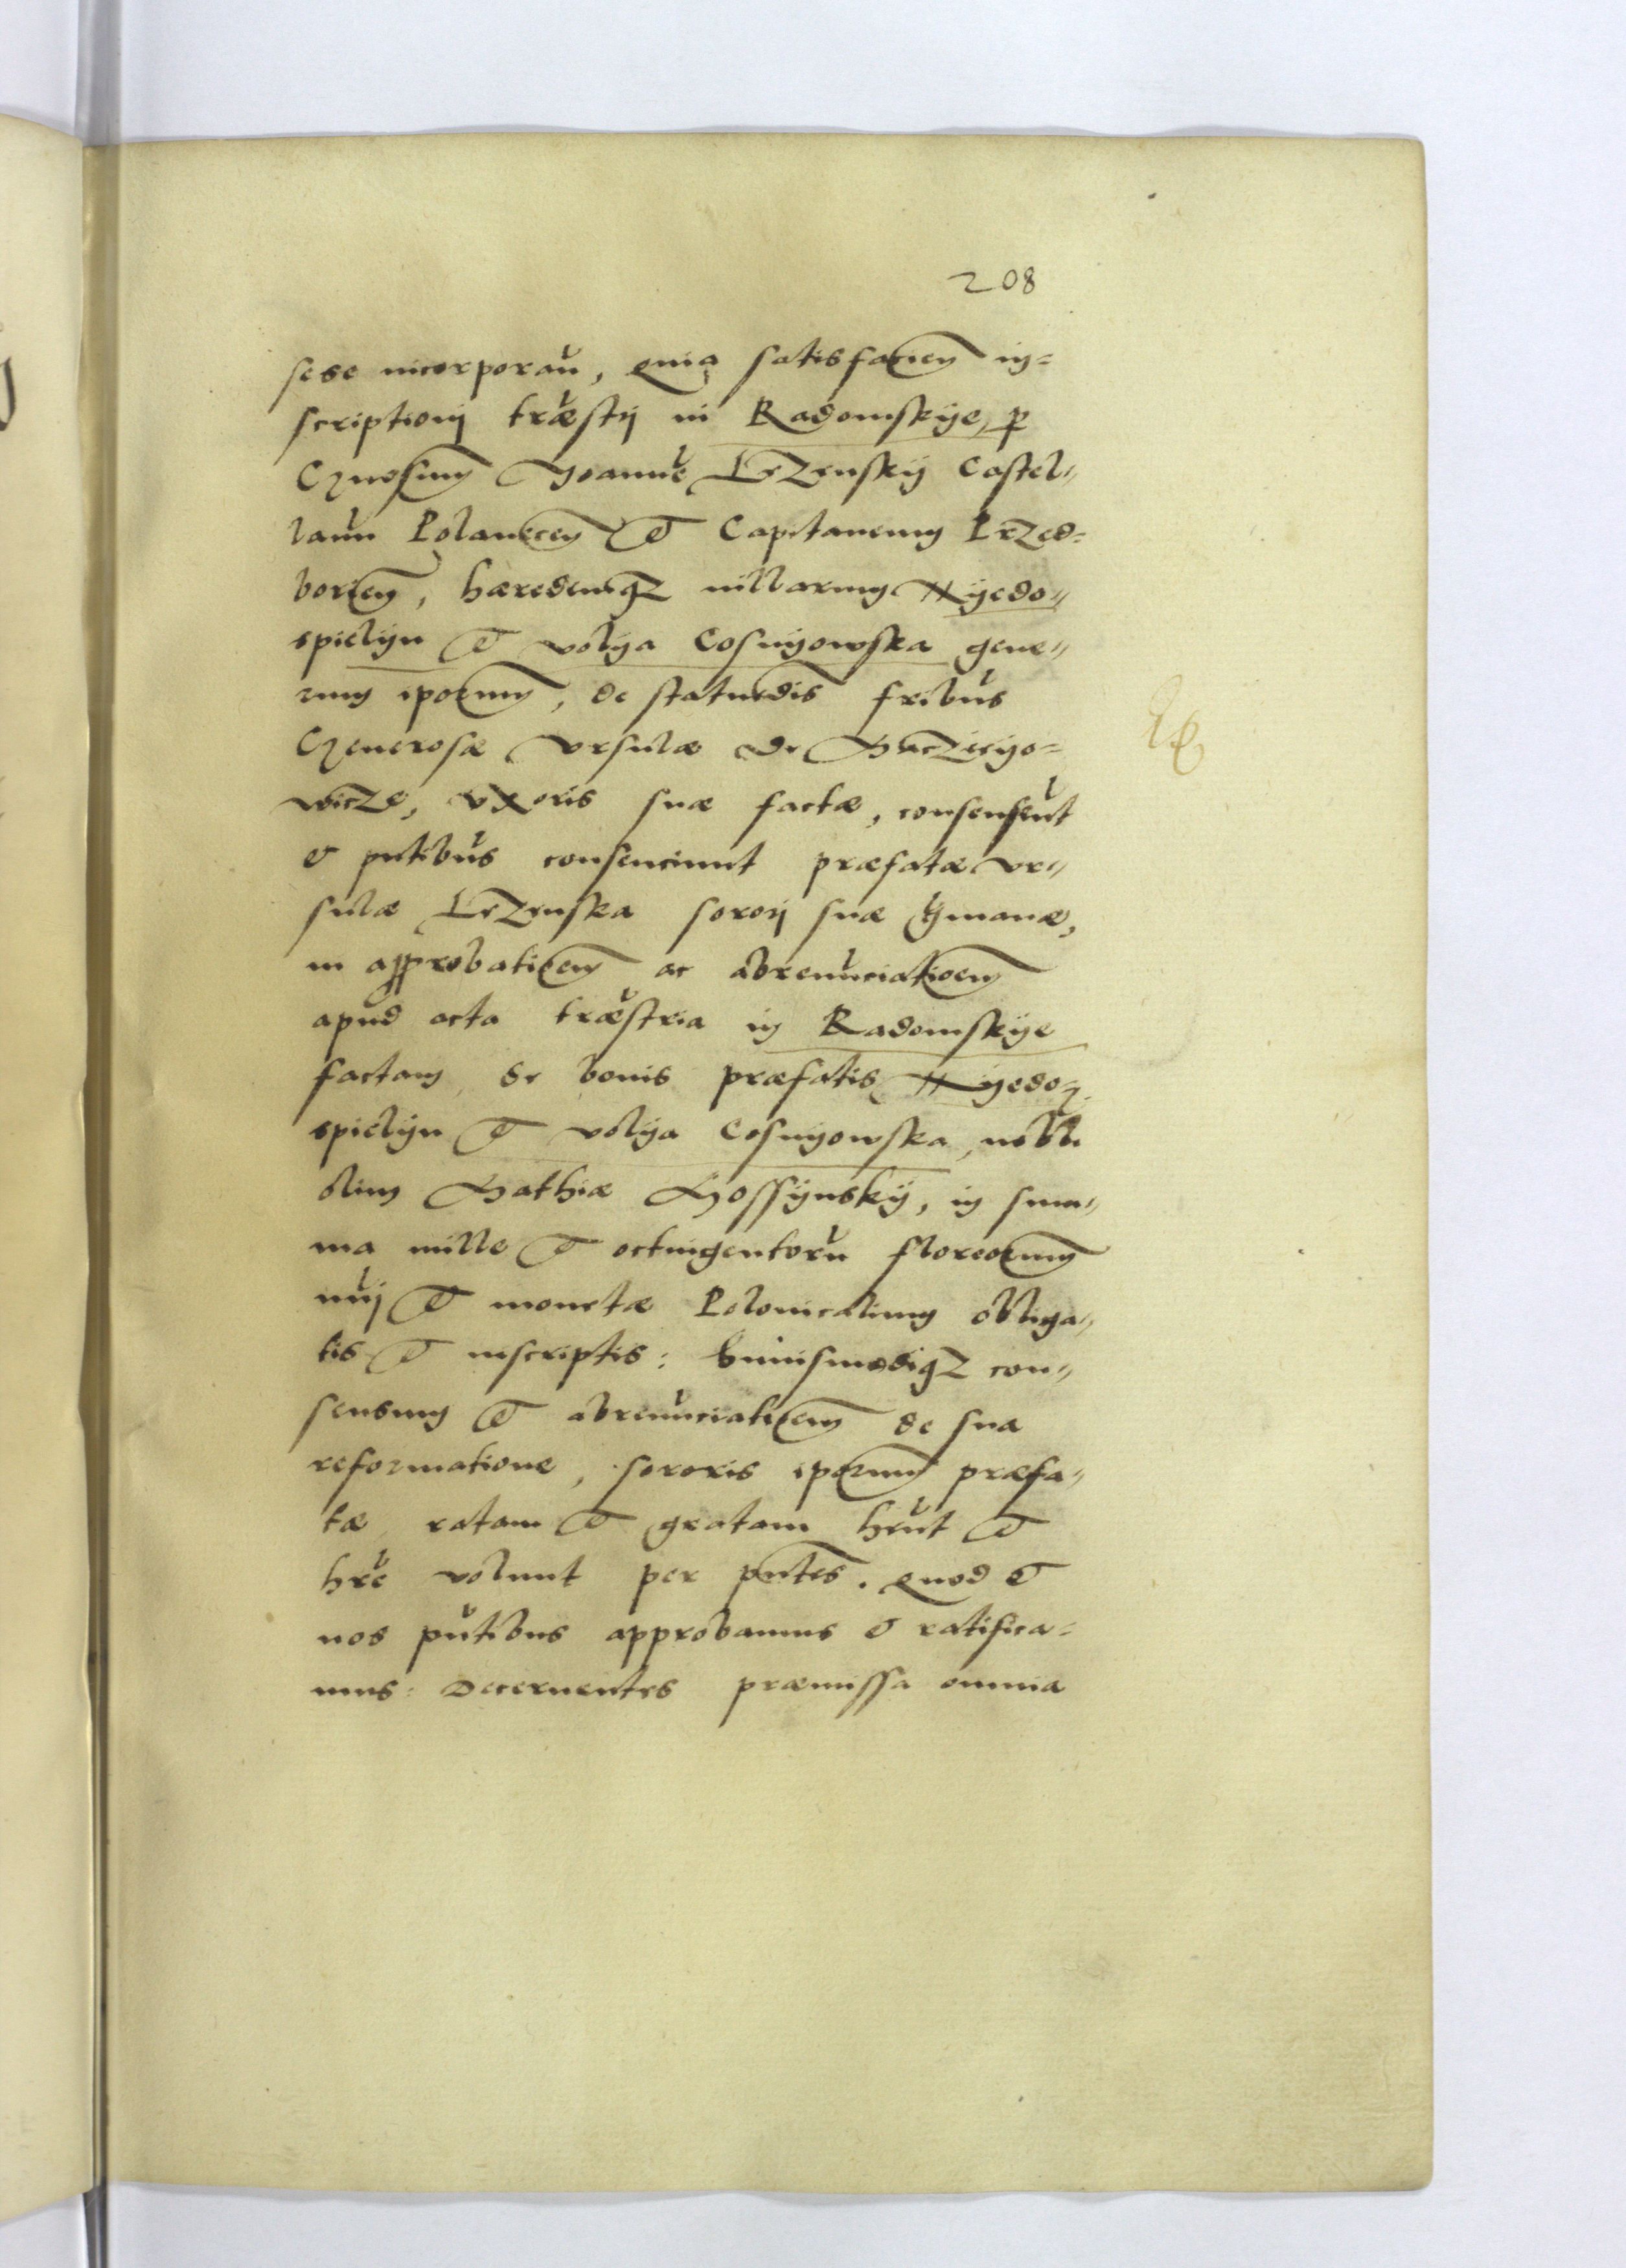 208
sese incorporaū, quia satisfaciem in=
scriptioni træstrj in Radomskÿe, p
Gnrosum Joannē Krzenskÿ Castel-
lanū Polanicen et Capitaneum Przed=
borien, hæredemq3 villarum Nÿedo-
spielÿn et volÿa Cosnÿowska gene-
rum ipsorum, de statuēdis fribus
Generosæ Vrsulæ de Maczieÿo=
wicze, vxoris suæ factæ, consenserūt
et pntibus consenciunt præfatæ vr-
sulæ Krzenska sororj suæ gmanæ,
in approbationem ac abrenūciationem
apud acta træstria in Radomskÿe
factam de bonis præfatis Nÿedo-
spielÿn et volÿa Cosnÿowska, nobli
olim Mathiæ Gossÿnskÿ, in sum-
ma mille et octingentorū florenorum
nuj et monetæ Polonicalium obliga-
tis et inscriptis: huiusmodiq3 con-
sensum et abrenūciationem de sua
reformatione, sororis ipsorum præfa-
tæ ratam et gratam hnt et
hre volunt per pntes. quod et
nos pntibus approbamus et ratifica=
mus: Decernentes præmissa omnia